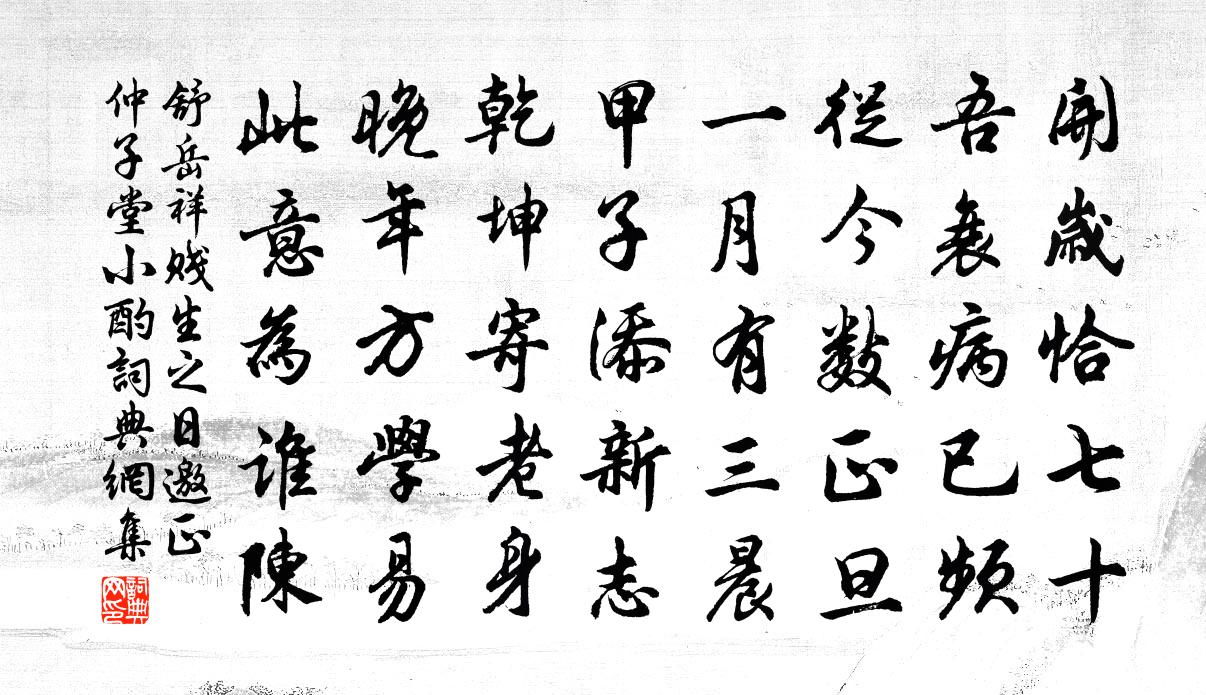 開歲恰七十
吾衰病已頻
從今數正旦
一月有三晨
甲子添新志
乾坤寄老身
晚年方學易
此意為誰陳
舒岳祥賤生之日邀正
仲子堂小酌詞典網集
詞典网印